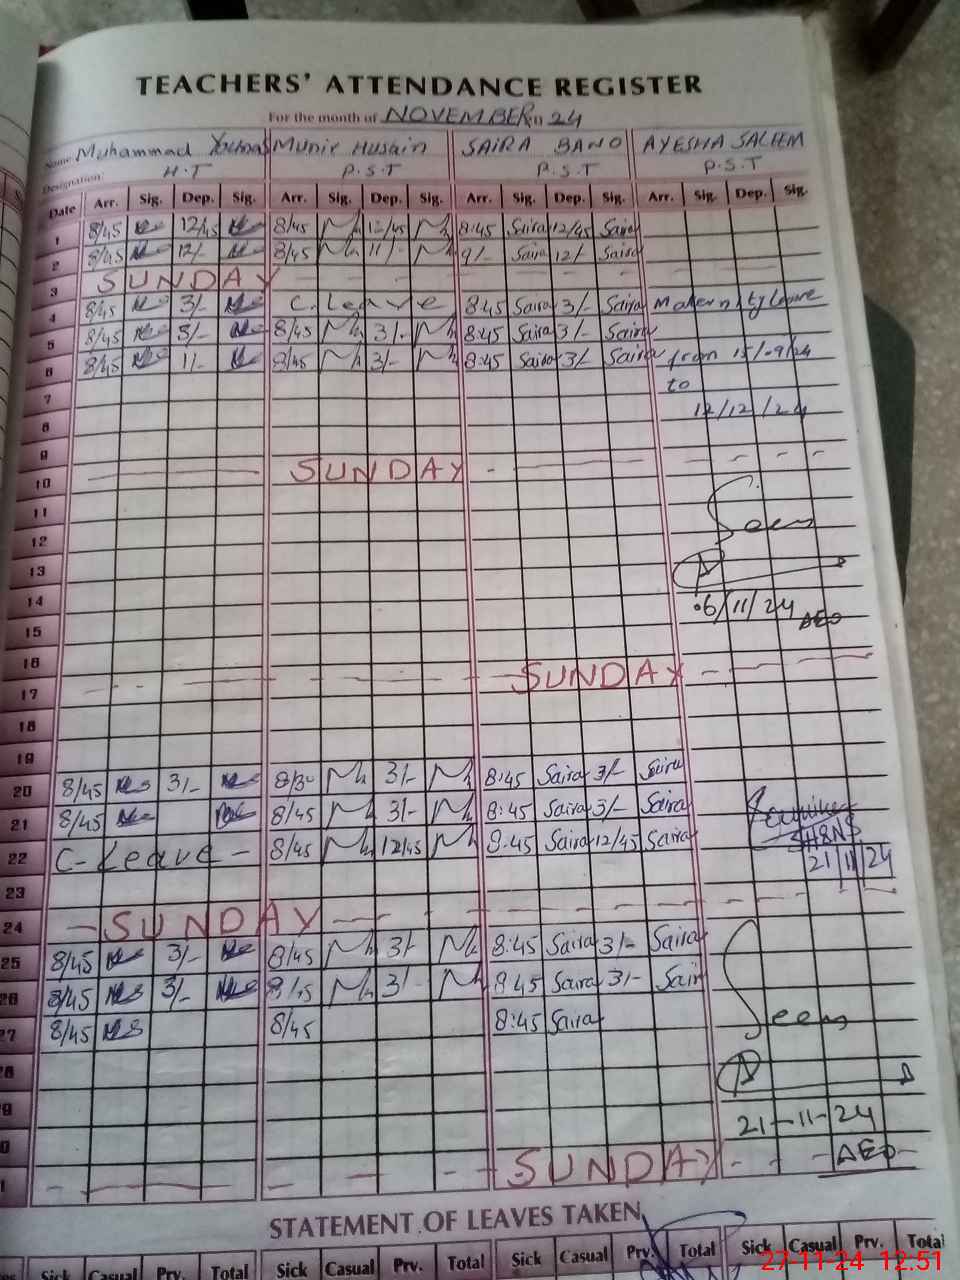 TEACHERS' ATTENDANCE REGISTER
For the month of NOVEMBER 24
Name Muhammad Munir Husain SAIRA BANO AYESHA SALEEM
Designation: H.T P.S.T P.S.T P.S.T
Date Arr. Sig. Dep. Sig. Arr. Sig. Dep. Sig. Arr. Sig. Dep. Sig. Arr. Sig. Dep. Sig.
1 8/45 12/45 8/45 12/45 8:45 Saira 12/45 Saira
2 8/45 12/- 8/45 11/- 9/- Saira 12/- Saira
3 SUNDAY
4 8/45 3/- C. Leave 8:45 Saira 3/- Saira Maternity Leave
5 8/45 3/- 8/45 3/- 8:45 Saira 3/- Saira
6 8/45 11/- 8/45 3/- 8:45 Saira 3/- Saira from 15/09/24
7 to
8 12/12/24
9
10 SUNDAY
11
12
13
14 06/11/24
15 AEO
16
17 SUNDAY
18
19
20 8/45 3/- 8/30 3/- 8:45 Saira 3/- Saira
21 8/45 8/45 3/- 8:45 Saira 3/- Saira
22 C-Leave - 8/45 12/45 8:45 Saira 12/45 Saira 21/11/24
23
24 SUNDAY
25 8/45 3/- 8/45 3/- 8:45 Saira 3/- Saira
26 8/45 3/- 8/45 3/- 8:45 Saira 3/- Saira
27 8/45 8/45 8:45 Saira Seen
28
29 21-11-24
30 AEO
31 SUNDAY
STATEMENT OF LEAVES TAKEN
Sick Casual Prv. Total Sick Casual Prv. Total Sick Casual Prv. Total
Casual Prv. Total
27-11-24 12:51